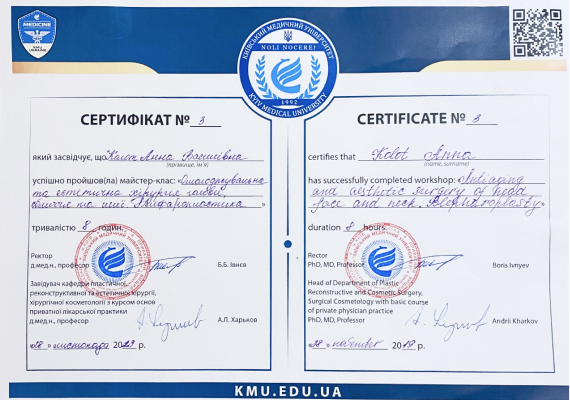 MEDICINE
KMU
UKRAINE
КИЇВСЬКИЙ МЕДИЧНИЙ УНІВЕРСИТЕТ
NOLI NOCERE!
1992
KYIV MEDICAL UNIVERSITY
СЕРТИФІКАТ № 3
який засвідчує, що Колот Анна Василівна
(прізвище, ім'я)
успішно пройшов(ла) майстер-клас: «Омолоджувальна
та естетична хірургія голови
обличчя та шиї. Блефаропластика »
тривалістю 8 годин.
Ректор
д.мед.н., професор Б.Б. Івнєв
Завідувач кафедри пластичної,
реконструктивної та естетичної хірургії,
хірургічної косметології з курсом основ
приватної лікарської практики
д.мед.н., професор А.Л. Харьков
«28» листопада 2019 р.
CERTIFICATE № 3
certifies that Kolot Anna
(name, surname)
has successfully completed workshop: «Antiaging
and aesthetic surgery of head
face and neck. Blepharoplasty»
duration 8 hours.
Rector
PhD, MD, Professor Boris Ivnyev
Head of Department of Plastic
Reconstructive and Cosmetic Surgery,
Surgical Cosmetology with basic course
of private physician practice
PhD, MD, Professor Andrii Kharkov
«28» november 2019 р.
KMU.EDU.UA